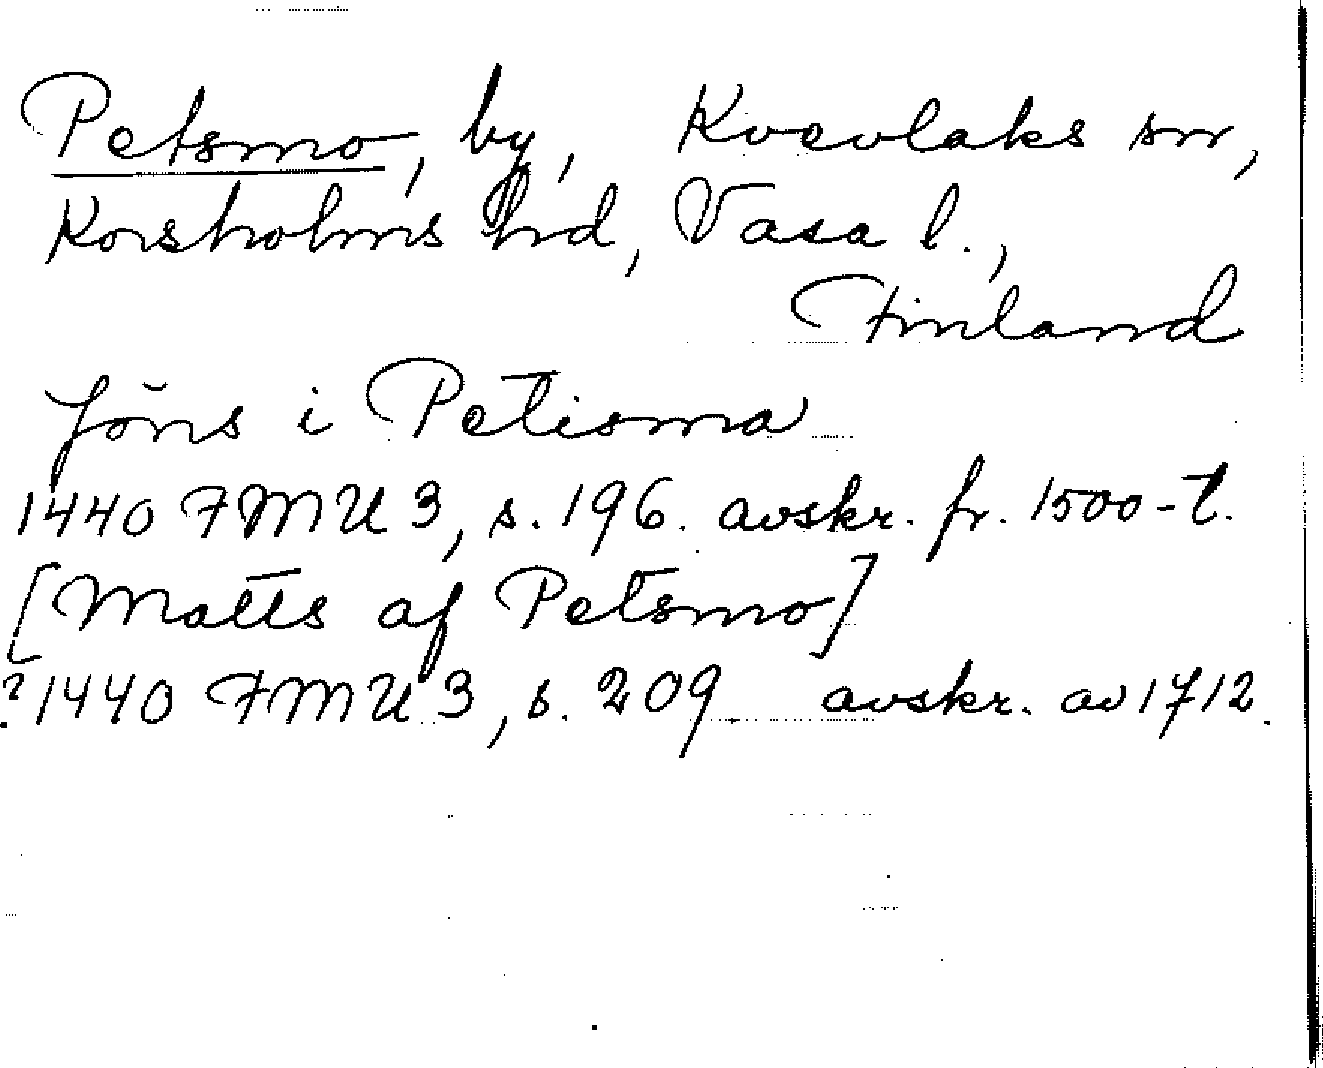 Petsmo, by, Kvevlaks sn,
Korsholms hd, Vasa l.,
Finland
Jöns i Petisma
1440 FMU 3, s. 196. avskr. fr. 1500-t.
[Matts af Petsmo]
?1440 FMU 3, s. 209 avskr. av 1712.